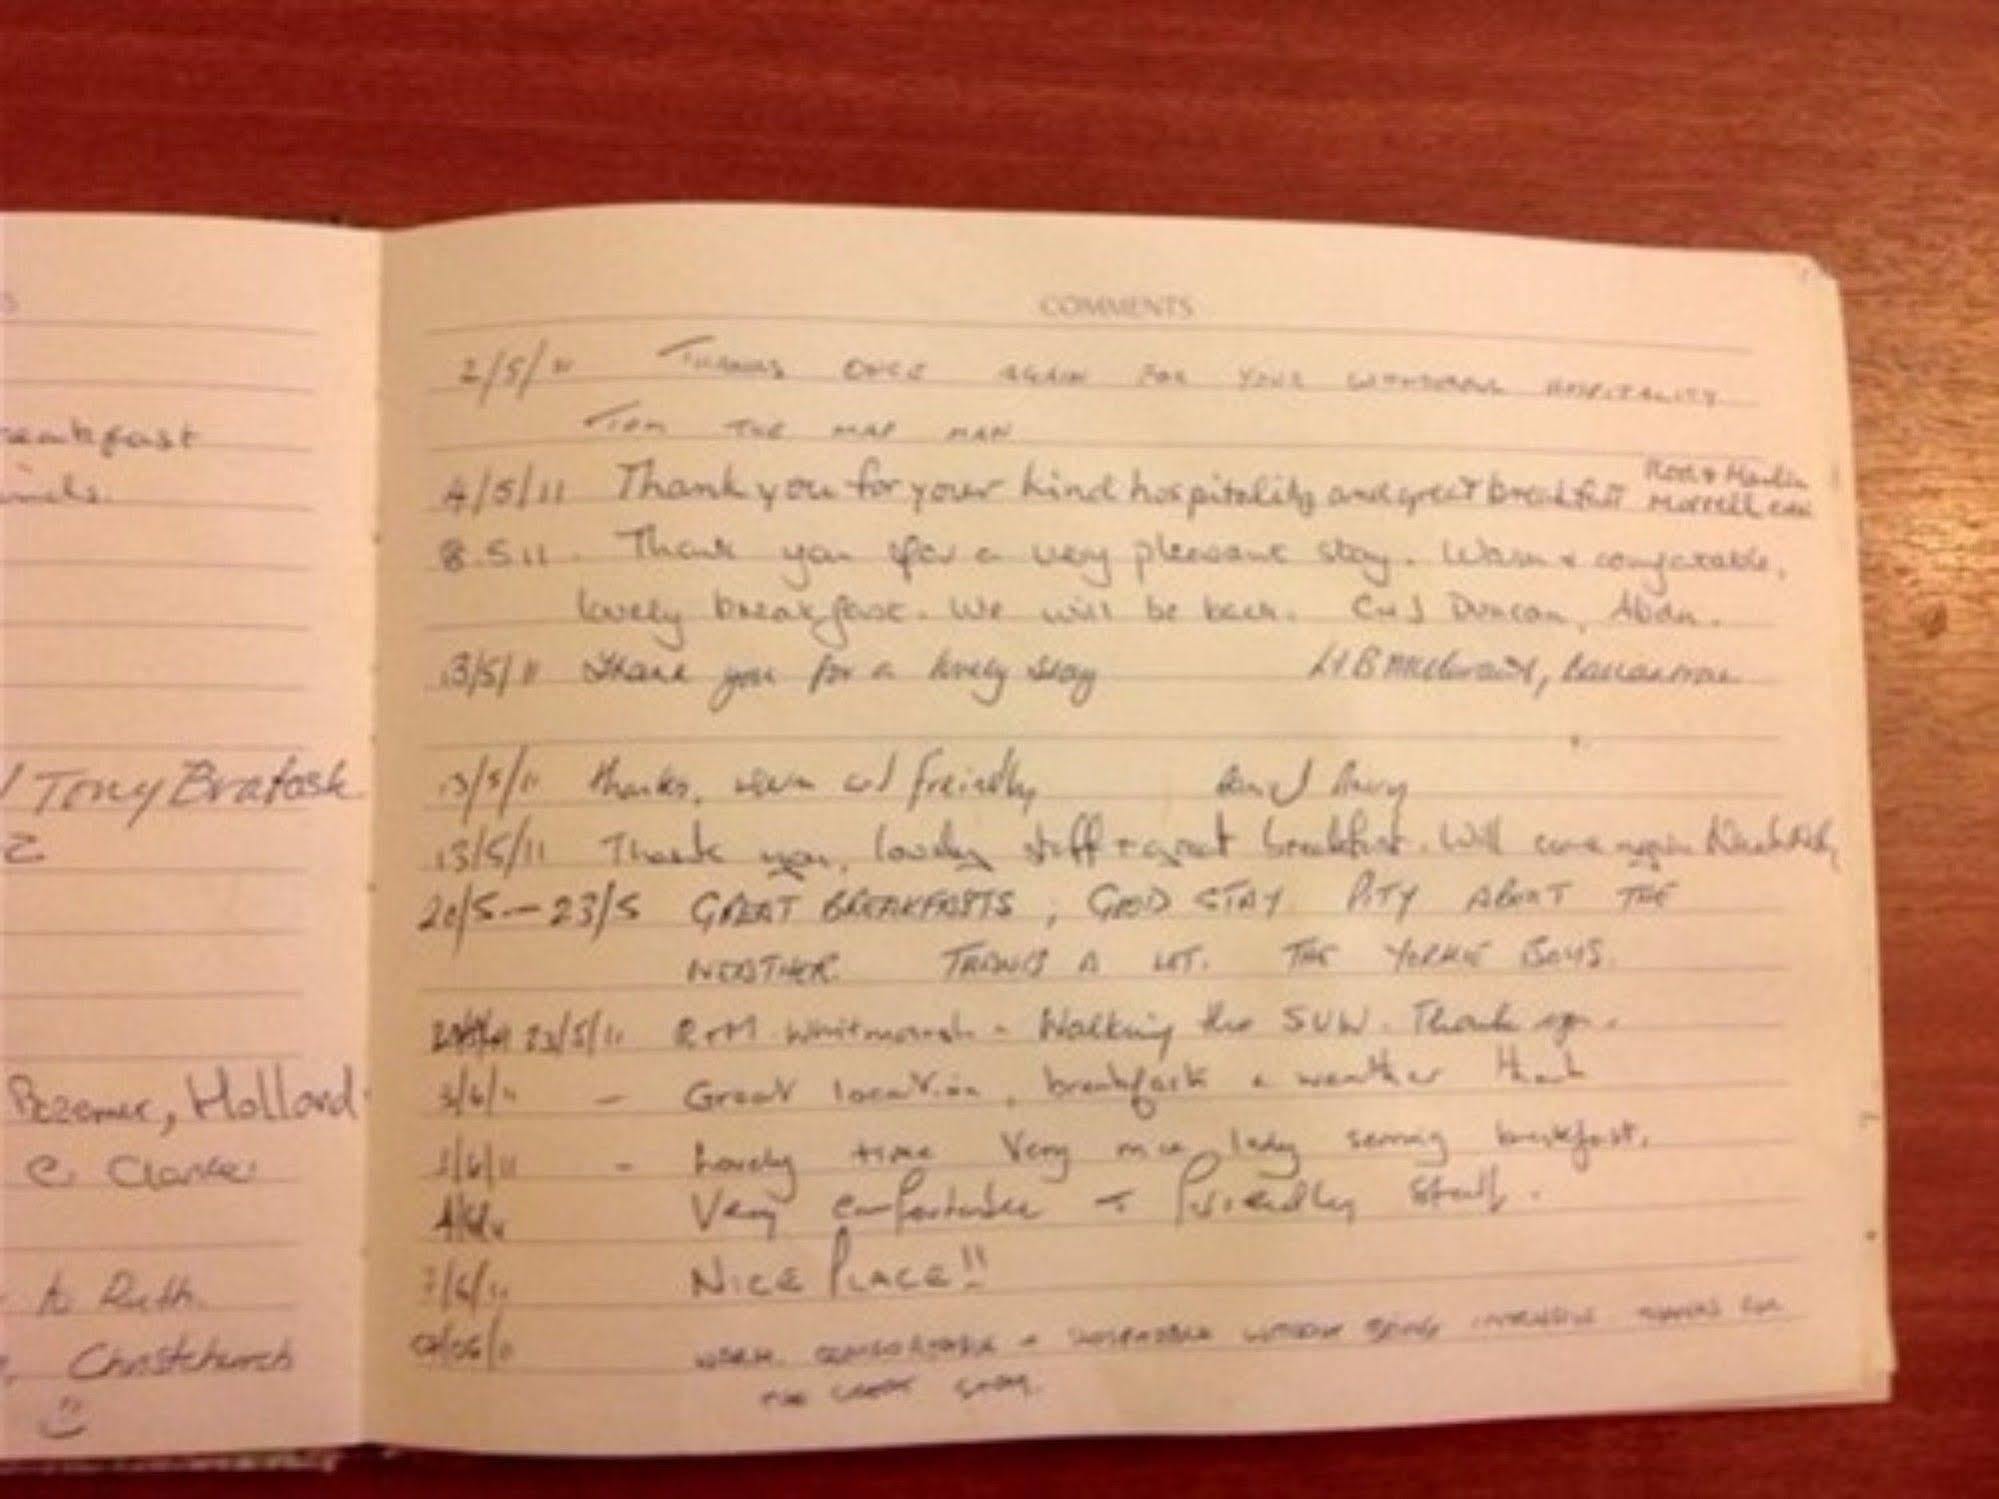 eakfast
Tony Bratosk
2
Bezemer, Holland
C. Clarke
A Ruth.
Christchurch
COMMENTS
2/5/11 THANKS ONCE AGAIN FOR YOUR WONDERFUL HOSPITALITY
TOM THE MAP MAN
4/5/11 Thank you for your kind hospitality and great breakfast Ron +
8.5.11. Thank you for a very pleasant stay. Warm + comfortable,
lovely breakfast. We will be back. C + J Duncan,
13/5/11 Thank you for a lovely stay
13/5/11 thanks, warm and freindly
13/5/11 Thank you, lovely staff + great breakfast. Will come again
20/5 - 23/5 GREAT BREAKFASTS, GOOD STAY PITY ABOUT THE
WEATHER. THANKS A LOT. THE YORKIE BOYS.
23/5/11 R + M Whitmarsh - Walking the SUW. Thank you.
3/6/11 - Great location, breakfast + weather
3/6/11 - Lovely time Very nice lady serving breakfast.
Very comfortable + friendly staff.
7/6/11 NICE PLACE!!
WARM, COMFORTABLE + WITHOUT BEING INTRUSIVE THANKS FOR
THE GREAT STAY.